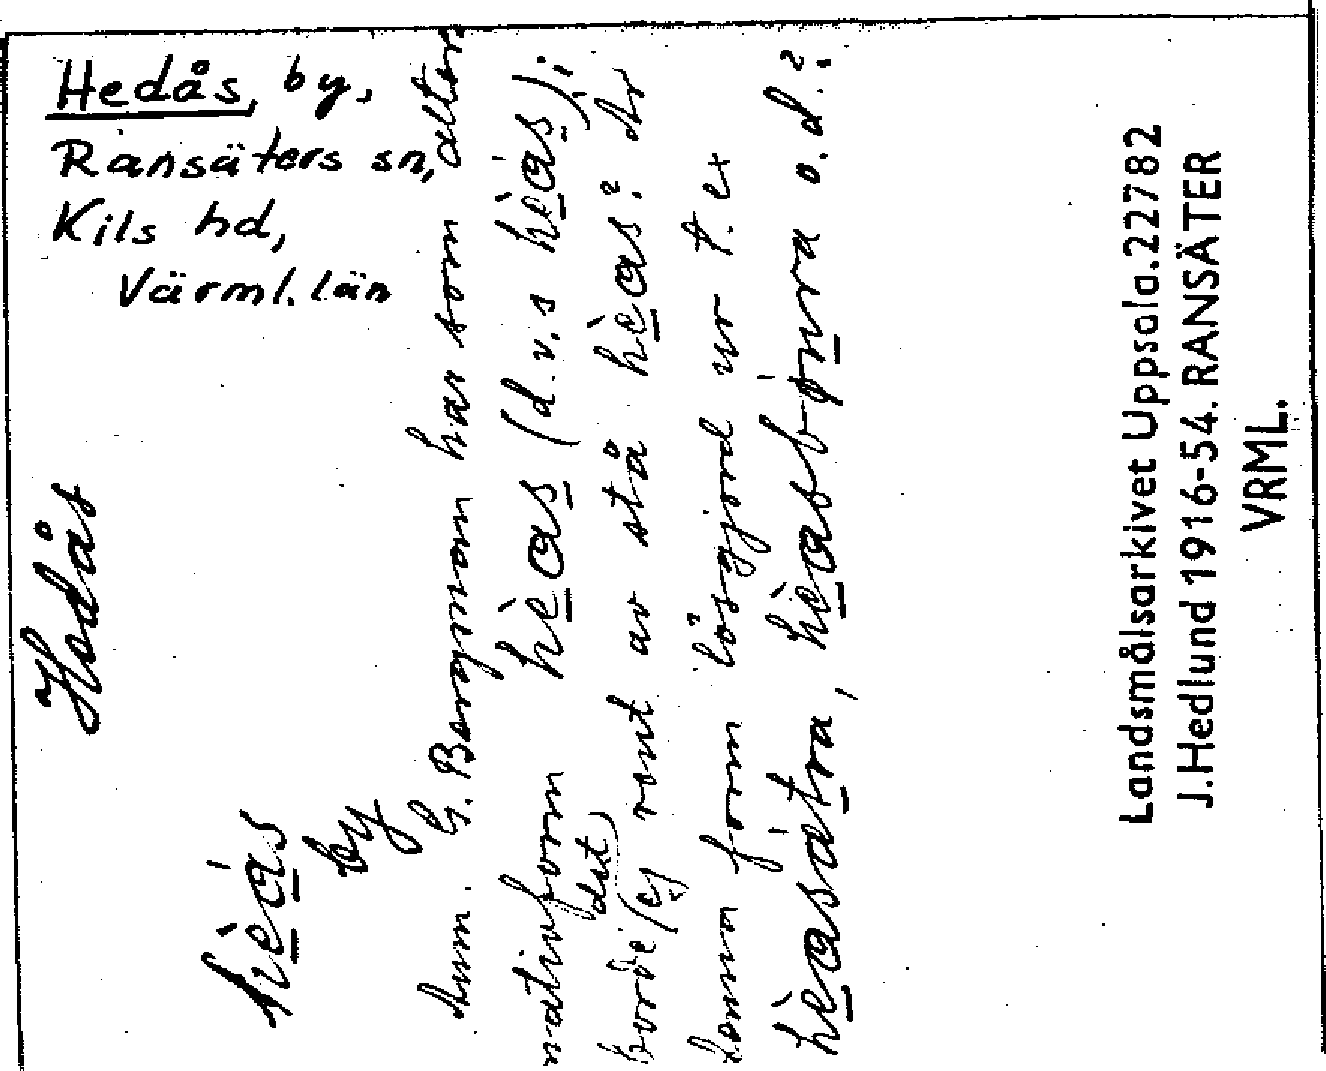 Hedås, by,
Ransäters sn,
Kils hd,
Värml. län
Hedås
hèás
by
Anm. G. Bergman har som alter-
nativform hèas (d.v.s hèás);
borde det (ej rent av stå hèas? Är
denna form lösgjord ur t. ex
hèasätra, hèasbjnra o.d.?
Landsmålsarkivet Uppsala. 22782
J. Hedlund 1916-54. RANSÄTER
VRML.